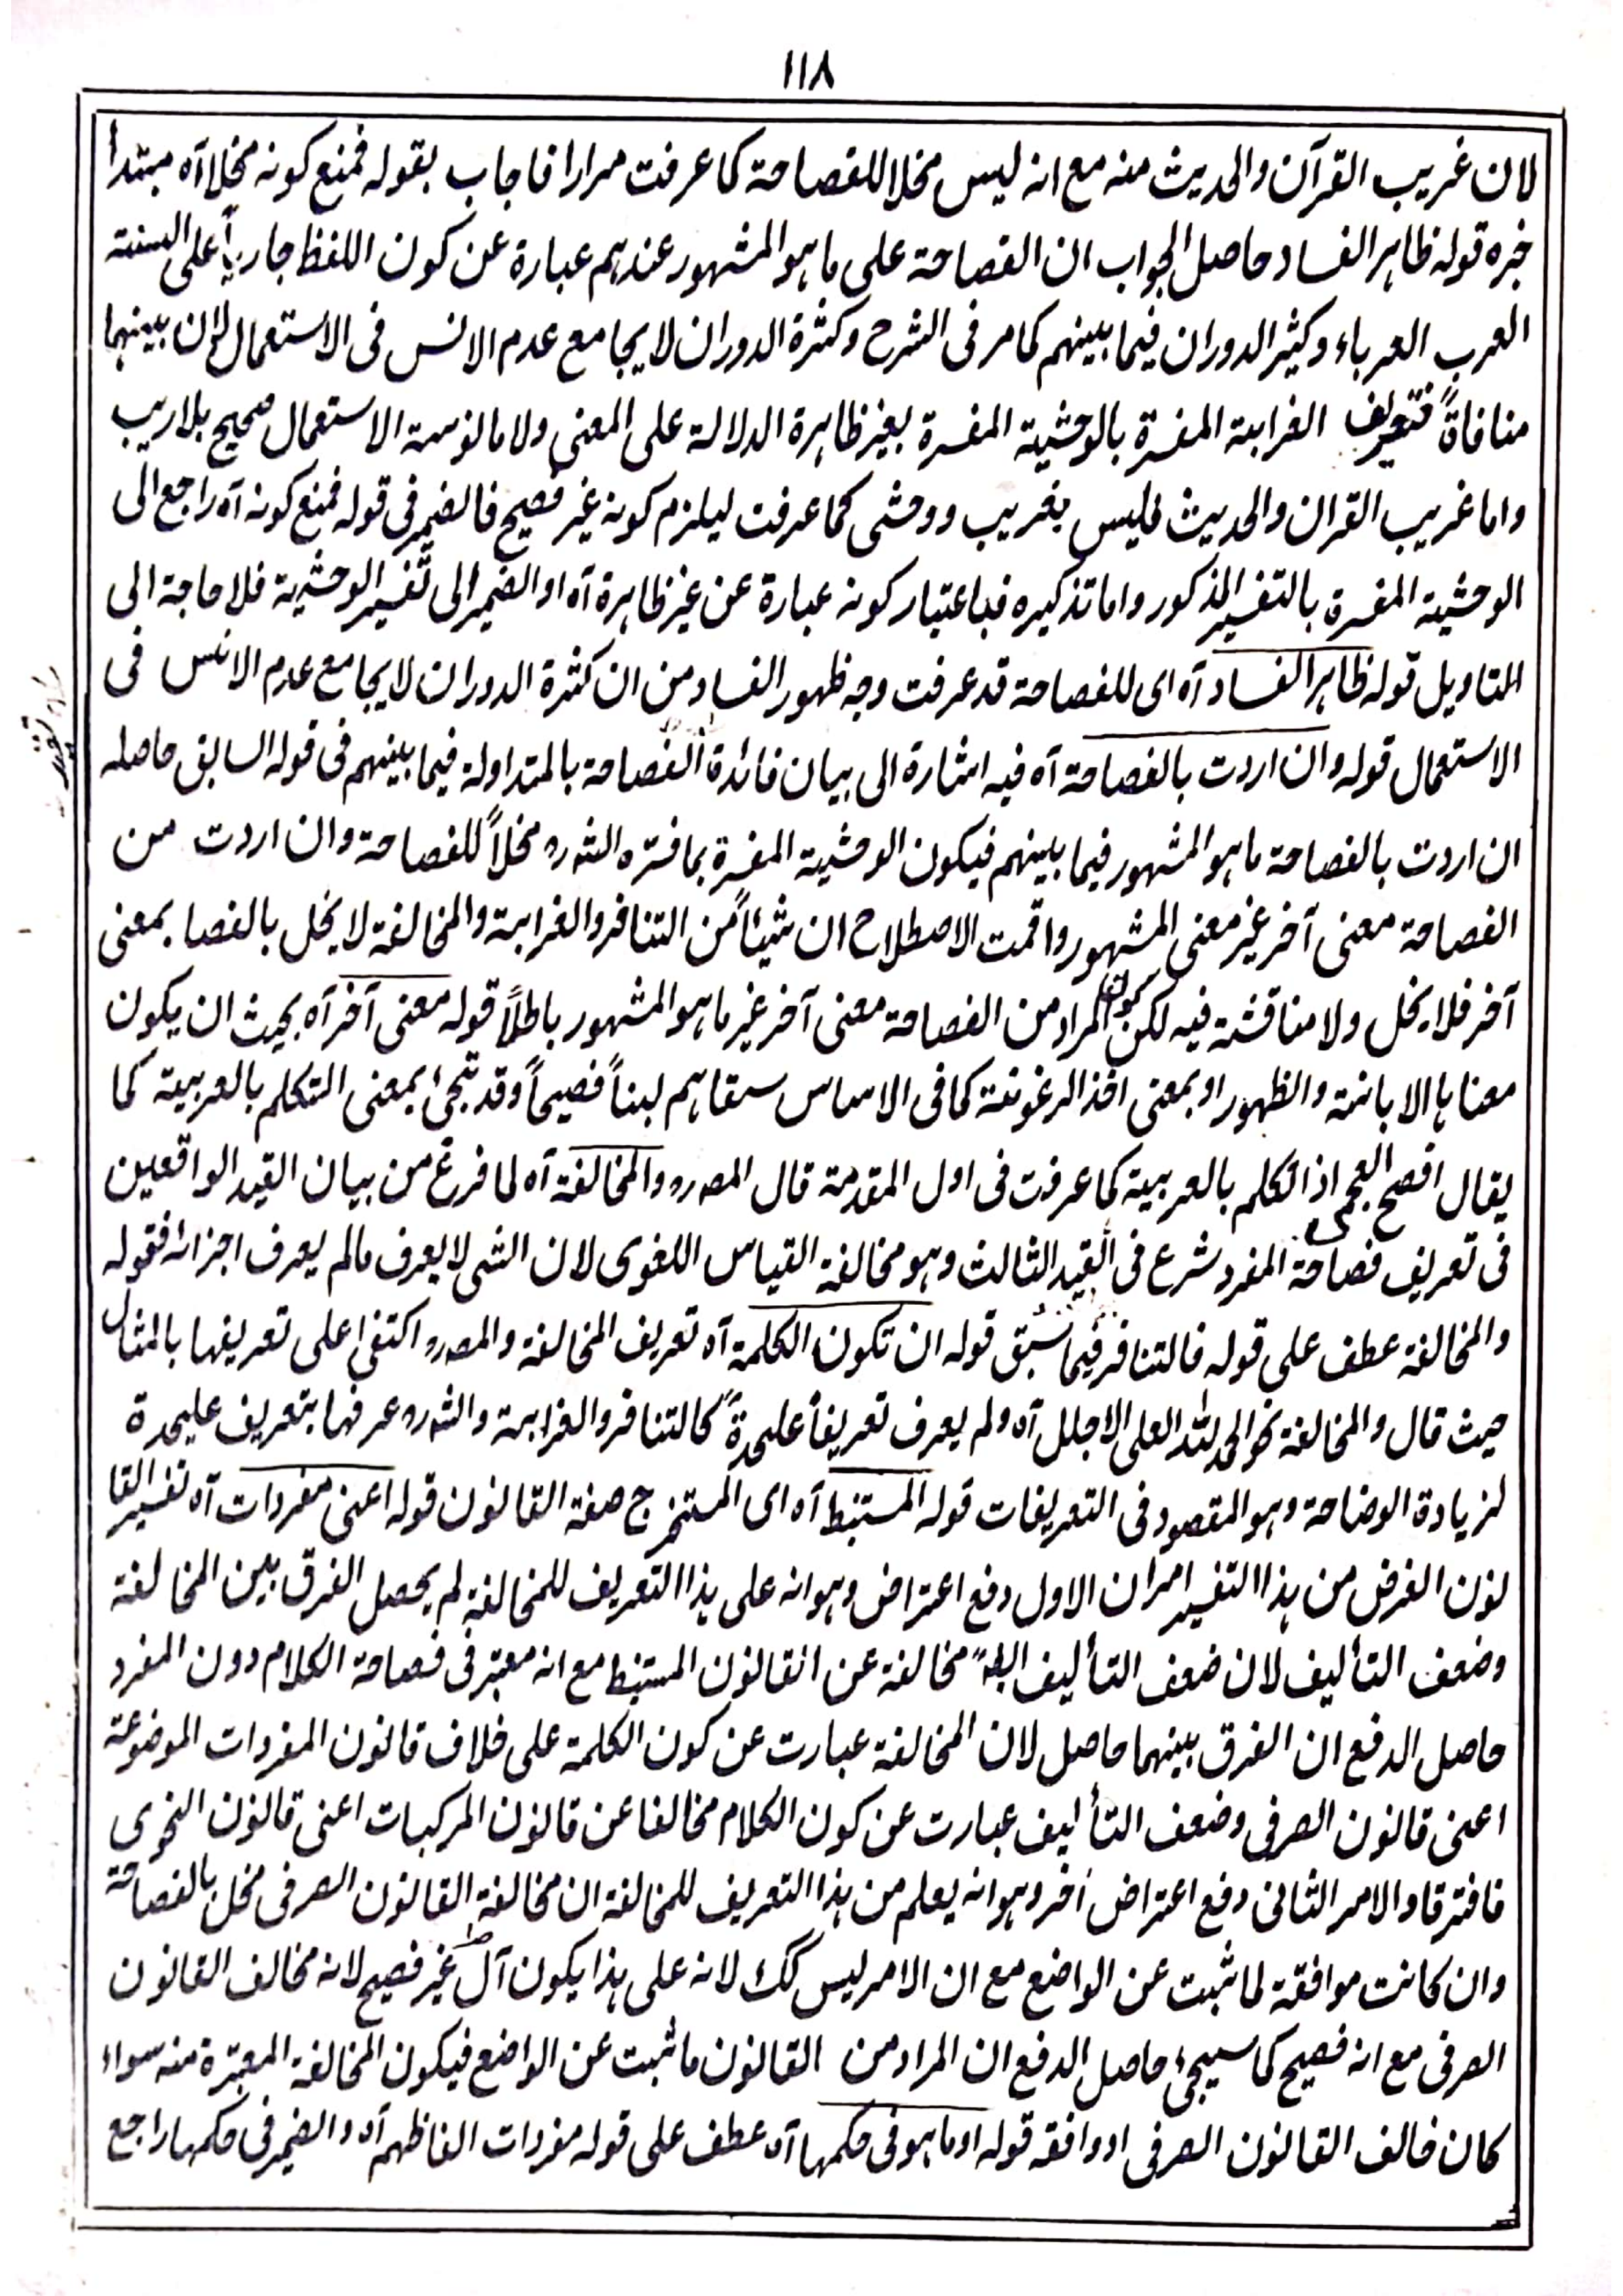 ١١٨
لان غريب القرآن والحديث منه مع انه ليس مخلا للفصاحة كما عرفت مرارا فاجاب بقوله فمنع كونه مخلا آه مبتدأ
خبره قوله ظاهر الفساد حاصل الجواب ان الفصاحة على ما هو المشهور عندهم عبارة عن كون اللفظ جارياً على السنة
العرب العرباء وكثير الدوران فيما بينهم كما مر فى الشرح وكثرة الدوران لا يجامع عدم الانس فى الاستعمال لان بينهما
منافاةً فتعريف الغرابة المفسرة بالوحشية المفسرة بغير ظاهرة الدلالة على المعنى ولا مانوسة الاستعمال صحيح بلا ريب
واما غريب القران والحديث فليس بغريب ووحشى كما عرفت ليلزم كونه غير فصيح فالضمير فى قوله فمنع كونه آه راجع الى
الوحشية المفسرة بالتفسير المذكور واما تذكيره فباعتبار كونه عبارة عن غير ظاهرة آه او الضمير الى تفسير الوحشية فلا حاجة الى
التاويل قوله ظاهر الفساد آه اى للفصاحة قد عرفت وجه ظهور الفساد من ان كثرة الدوران لا يجامع عدم الانس فى
الاستعمال قوله وان اردت بالفصاحة آه فيه اشارة الى بيان فائدة الفصاحة بالمتداولة فيما بينهم فى قوله السابق حاصله
ان اردت بالفصاحة ما هو المشهور فيما بينهم فيكون الوحشية المفسرة بما فسره الشه ره مخلاً للفصاحة وان اردت من
الفصاحة معنى آخر غير معنى المشهور واقمت الاصطلاح ان شيئاً من التنافر والغرابة والمخالفة لا يخل بالفصا بمعنى
آخر فلا يخل ولا مناقشة فيه لكن كون المراد من الفصاحة معنى آخر غير ما هو المشهور باطلاً قوله معنى آخر آه بحيث ان يكون
معناها الابانة والظهور او بمعنى اخذ الرغوة كما فى الاساس سقاهم لبناً فصيحاً وقد تجئ بمعنى التكلم بالعربية كما
يقال افصح العجمى اذا تكلم بالعربية كما عرفت فى اول المقدمة قال المص ره والمخالفة آه لما فرغ من بيان القيد الواقعين
فى تعريف فصاحة المفرد شرع فى القيد الثالث وهو مخالفة القياس اللغوى لان الشى لا يعرف مالم يعرف اجزائه فقوله
والمخالفة عطف على قوله فالتنافر فيما سبق قوله ان تكون الكلمة آه تعريف المخالفة والمص ره اكتفى على تعريفها بالمثال
حيث قال والمخالفة نحو الحمد لله العلى الاجلل آه ولم يعرف تعريفاً عليحدةً كالتنافر والغرابة والشه ره عرفها بتعريف عليحدة
لزيادة الوضاحة وهو المقصود فى التعريفات قوله المستنبط آه اى المستخرج صفة القانون قوله اعنى مفردات آه تفسير القا
نون الغرض من هذا التفسير امران الاول دفع اعتراض وهو انه على هذا التعريف للمخالفة لم يحصل الفرق بين المخالفة
وضعف التأليف لان ضعف التأليف مخالفة عن القانون المستنبط مع انه معتبر فى فصاحة الكلام دون المفرد
حاصل الدفع ان الفرق بينهما حاصل لان المخالفة عبارت عن كون الكلمة على خلاف قانون المفردات الموضوعة
اعنى قانون الصرفى وضعف التأليف عبارت عن كون الكلام مخالفا عن قانون المركبات اعنى قانون النحوى
فافترقا والامر الثانى دفع اعتراض اٰخر وهو انه يعلم من هذا التعريف للمخالفة ان مخالفة القانون الصرفى مخل بالفصاحة
وان كانت موافقة لما ثبت عن الواضع مع ان الامر ليس كك لانه على هذا يكون آل غير فصيح لانه مخالف القانون
الصرفى مع انه فصيح كما سيجئ حاصل الدفع ان المراد من القانون ما ثبت عن الواضع فيكون المخالفة المعتبرة منه سواء
كان خالف القانون الصرفى او وافقه قوله او ما هو فى حكمها آه عطف على قوله مفردات الفاظهم آه والضمير فى حكمها راجع